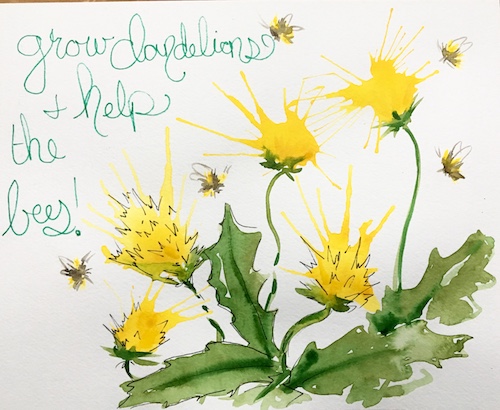 grow dandelions
+ help
the
bees!